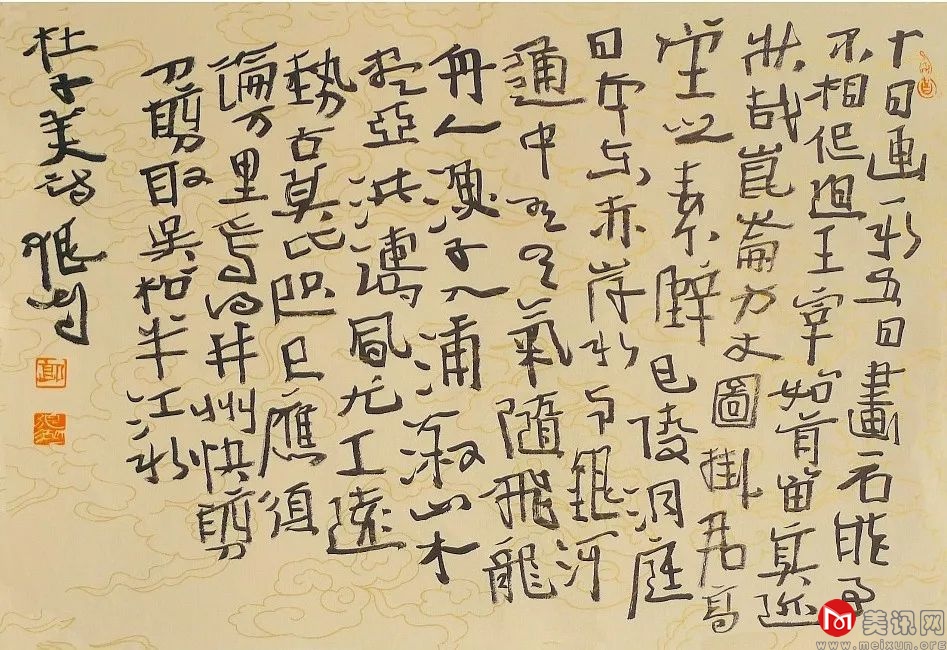 十日画水五日畫石能事
不相促迫王宰始肯留真迹
壮哉崑崙方丈圖掛君高
堂之素壁巴陵洞庭
日本东赤岸水与銀河
通中有云氣隨飛龍
舟人渔子入浦溆山木
尽亞洪涛風尤工遠
勢古莫比咫尺應須
論万里焉得并州快剪
刀剪取吳松半江水
杜子美诗
美讯网
www.meixun.org